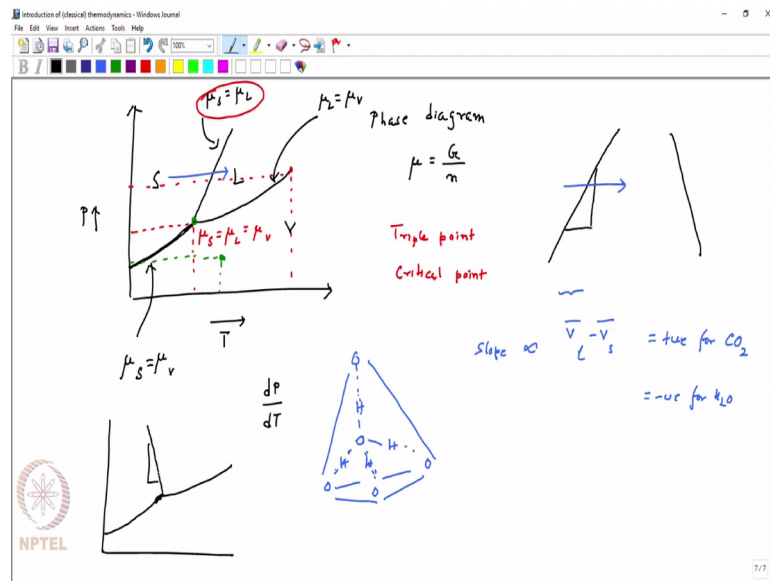 Introduction of (classical) thermodynamics - Windows Journal
File Edit View Insert Actions Tools Help
100%
B I
μs = μL
μL = μv
Phase diagram
μ = G/n
S
L
P↑
μs = μL = μv
V
Triple point
Critical point
T
μs = μv
Slope ∝ V̅l - V̅s = +ve for CO2
= -ve for H2O
dP
dT
O
H
O H
H H O
O O
NPTEL
7/7